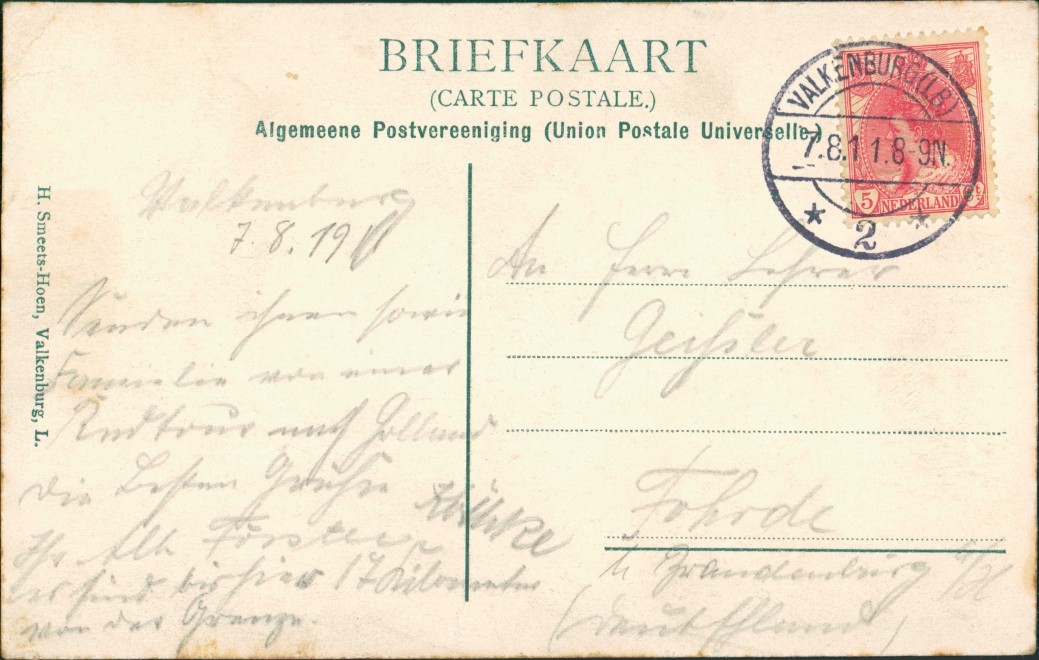 BRIEFKAART
(CARTE POSTALE.)
Algemeene Postvereeniging (Union Postale Universelle.)
VALKENBURG (LB)
7.8.11.8-9N.
2
5 NEDERLAND
H. Smeets-Hoen, Valkenburg, L.
Valkenburg
7.8.1911
Senden ihnen sowie
Familie von einer
Radtour nach Holland
die besten Grüße
Ihr Alb. Förster
es sind bis hier 17 Kilometer
von der Grenze.
An Herrn Lehrer
Geißler
Fohrde
b. Brandenburg a/H
(Deutschland)